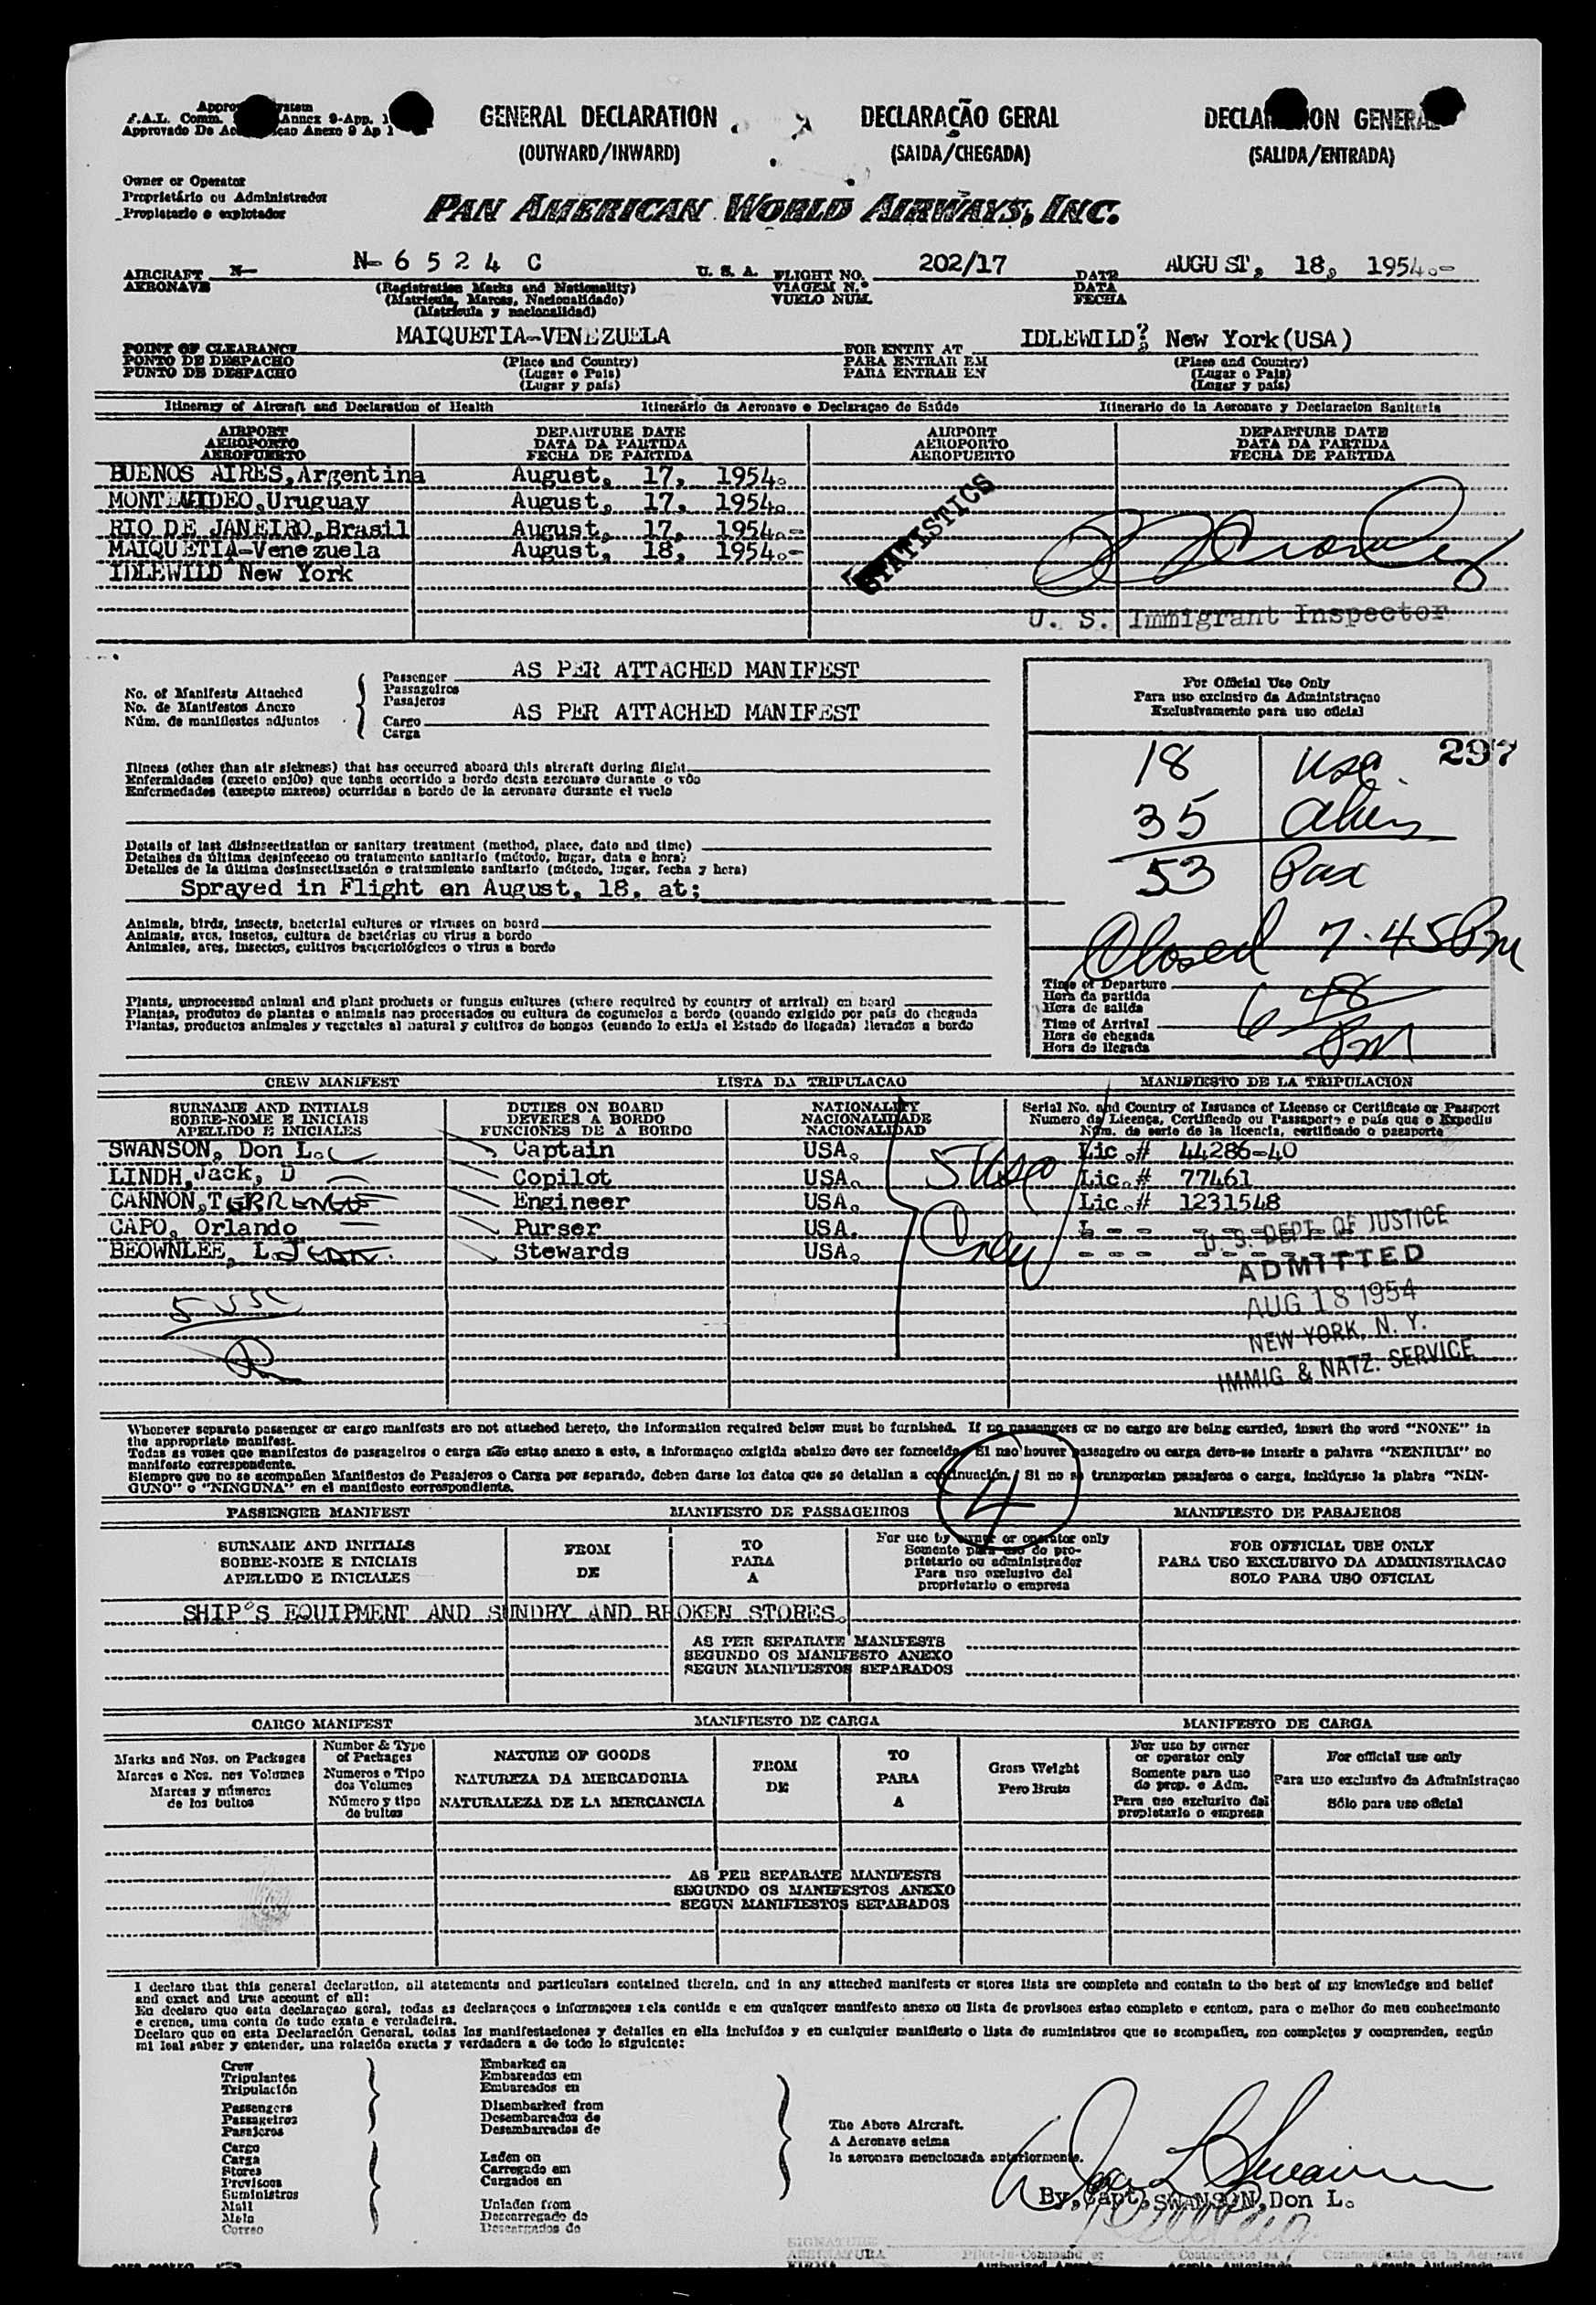 GENERAL DECLARATION
(OUTWARD/INWARD)
DECLARAÇÃO GERAL
(SAIDA/CHEGADA)
(SALIDA/ENTRADA)
Owner or Operator
Proprietário ou Administrador
Propietario o explotador
PAN AMERICAN WORLD AIRWAYS, INC.
AIRCRAFT N- N- 6 5 2 4 C U. S. A. FLIGHT NO. 202/17 DATE AUGUST, 18, 1954.-
AERONAVE (Registration Marks and Nationality) VIAGEM N.º DATA
(Matricula, Marcas, Nacionalidade) VUELO NUM. FECHA
(Matricula y nacionalidad)
POINT OF CLEARANCE MAIQUETIA-VENEZUELA FOR ENTRY AT IDLEWILD? New York(USA)
PONTO DE DESPACHO (Place and Country) PARA ENTRAR EM (Place and Country)
PUNTO DE DESPACHO (Lugar e Pais) PARA ENTRAR EN (Lugar o Pais)
(Lugar y país) (Lugar y país)
Itinerary of Aircraft and Declaration of Health Itinerário da Aeronave e Declaraçao de Saúde Itinerario de la Aeronave y Declaracion Sanitaria
AIRPORT DEPARTURE DATE AIRPORT DEPARTURE DATE
AEROPORTO DATA DA PARTIDA AEROPORTO DATA DA PARTIDA
AEROPUERTO FECHA DE PARTIDA AEROPUERTO FECHA DE PARTIDA
BUENOS AIRES,Argentina August, 17, 1954.
MONTEVIDEO,Uruguay August, 17, 1954.
RIO DE JANEIRO,Brasil August, 17, 1954.-
MAIQUETIA-Venezuela August, 18, 1954.-
IDLEWILD New York
STATISTICS
U. S. Immigrant Inspector
No. of Manifests Attached
No. de Manifestos Anexo
Núm. de manifiestos adjuntos
Passenger AS PER ATTACHED MANIFEST
Passageiros
Pasajeros
Cargo AS PER ATTACHED MANIFEST
Carga
For Official Use Only
Para uso exclusivo da Administraçao
Exclusivamente para uso oficial
297
18 USA
35 Alien
53 Pax
Closed 7.45 Pm
Time of Departure
Hora da partida
Hora de salida
Time of Arrival 6 48 PM
Hora de chegada
Hora de llegada
Illness (other than air sickness) that has occurred aboard this aircraft during flight
Enfermidades (exceto enjôo) que tenha ocorrido a bordo desta aeronave durante o vôo
Enfermedades (excepto mareos) ocurridas a bordo de la aeronave durante el vuelo
Details of last disinsectization or sanitary treatment (method, place, date and time)
Detalhes da última desinfeccao ou tratamento sanitario (método, lugar, data e hora)
Detalles de la última desinsectización o tratamiento sanitario (método, lugar, fecha y hora)
Sprayed in Flight en August, 18, at;
Animals, birds, insects, bacterial cultures or viruses on board
Animais, aves, insetos, cultura de bactérias ou virus a bordo
Animales, aves, insectos, cultivos bacteriológicos o virus a bordo
Plants, unprocessed animal and plant products or fungus cultures (where required by country of arrival) on board
Plantas, produtos de plantas e animais nao processados ou cultura de cogumelos a bordo (quando exigido por país do chegada
Plantas, productos animales y vegetales al natural y cultivos de hongos (cuando lo exija el Estado de llegada) llevados a bordo
CREW MANIFEST LISTA DA TRIPULACAO MANIFIESTO DE LA TRIPULACION
SURNAME AND INITIALS DUTIES ON BOARD NATIONALITY Serial No. and Country of Issuance of License or Certificate or Passport
SOBRE-NOME E INICIAIS DEVERES A BORDO NACIONALIDADE Numero da Licença, Certificado ou Passaporte e país que o Expediu
APELLIDO E INICIALES FUNCIONES DE A BORDO NACIONALIDAD Núm. de serie de la licencia, certificado o pasaporte
SWANSON, Don L. Captain USA. Lic.# 44286-40
LINDH,Jack, D Copilot USA. Lic.# 77461
CANNON,TERRENCE Engineer USA. Lic.# 1231548
CAPO, Orlando Purser USA.
BEOWNLEE, L.Jean Stewards USA.
5 USA
Crew
5 USC
U. S. DEPT. OF JUSTICE
ADMITTED
AUG 18 1954
NEW YORK, N. Y.
IMMIG & NATZ. SERVICE
Whenever separate passenger or cargo manifests are not attached hereto, the information required below must be furnished. If no passengers or no cargo are being carried, insert the word "NONE" in
the appropriate manifest.
Todas as vezes que manifestos de passageiros o carga não estao anexo a este, a informaçao exigida abaixo deve ser fornecida. Si nao houver passageiro ou carga deve-se inserir a palavra "NENHUM" no
manifesto correspondente.
Siempre que no se acompañen Manifiestos de Pasajeros o Carga por separado, deben darse los datos que se detallan a continuación. Si no se transportan pasajeros o carga, inclúyase la plabra "NIN-
GUNO" o "NINGUNA" en el manifiesto correspondiente.
4
PASSENGER MANIFEST MANIFESTO DE PASSAGEIROS MANIFIESTO DE PASAJEROS
SURNAME AND INITIALS FROM TO For use by owner or operator only FOR OFFICIAL USE ONLY
SOBRE-NOME E INICIAIS DE PARA Somente para uso do pro- PARA USO EXCLUSIVO DA ADMINISTRACAO
APELLIDO E INICIALES A prietario ou administrador SOLO PARA USO OFICIAL
Para uso exclusivo del
propietario o empresa
SHIP'S EQUIPMENT AND SUNDRY AND BROKEN STORES.
AS PER SEPARATE MANIFESTS
SEGUNDO OS MANIFESTO ANEXO
SEGUN MANIFIESTOS SEPARADOS
CARGO MANIFEST MANIFIESTO DE CARGA MANIFESTO DE CARGA
Marks and Nos. on Packages
Marcas e Nos. nos Volumes
Marcas y números
de los bultos
Number & Type
of Packages
Numeros e Tipo
dos Volumes
Número y tipo
de bultos
NATURE OF GOODS
NATUREZA DA MERCADORIA
NATURALEZA DE LA MERCANCIA
FROM
DE
TO
PARA
A
Gross Weight
Peso Bruto
For use by owner
or operator only
Somente para uso
do prop. e Adm.
Para uso exclusivo del
propietario o empresa
For official use only
Para uso exclusivo da Administraçao
Sólo para uso oficial
AS PER SEPARATE MANIFESTS
SEGUNDO OS MANIFESTOS ANEXO
SEGUN MANIFIESTOS SEPARADOS
I declare that this general declaration, all statements and particulars contained therein, and in any attached manifests or stores lists are complete and contain to the best of my knowledge and belief
and exact and true account of all:
Eu declaro que esta declaraçao geral, todas as declaraçoes e informaçoes nela contida e em qualquer manifesto anexo ou lista de provisoes estao completo e contem, para o melhor do meu conhecimento
e crenca, uma conta de tudo exata e verdadeira.
Declaro que en esta Declaración General, todas las manifestaciones y detalles en ella incluídos y en cualquier manifiesto o lista de suministros que se acompañen, son completos y comprenden, según
mi leal saber y entender, una relación exacta y verdadera a de todo lo siguiente:
Crew
Tripulantes
Tripulación
Passengers
Passageiros
Pasajeros
Cargo
Carga
Stores
Provisoes
Suministros
Mail
Mala
Correo
Embarked on
Embarcados em
Embarcados en
Disembarked from
Desembarcados de
Desembarcados de
Laden on
Carregado em
Cargados en
Unladen from
Descarregado de
Descargados de
The Above Aircraft.
A Aeronave acima
la aeronave mencionada anteriormente.
Don L Swanson
By,Capt,SWANSON,Don L.
SIGNATURE
ASSINATURA